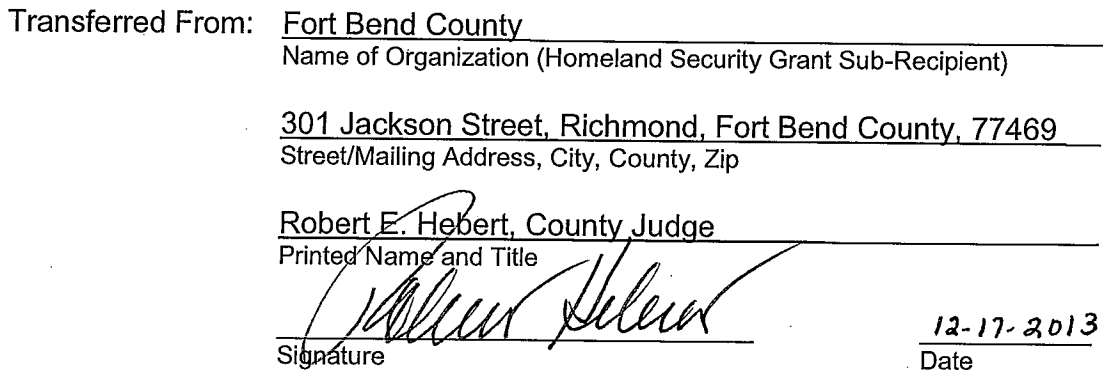 Transferred From: Fort Bend County
Name of Organization (Homeland Security Grant Sub-Recipient)
301 Jackson Street, Richmond, Fort Bend County, 77469
Street/Mailing Address, City, County, Zip
Robert E. Hebert, County Judge
Printed Name and Title
Robert Hebert 12-17-2013
Signature Date